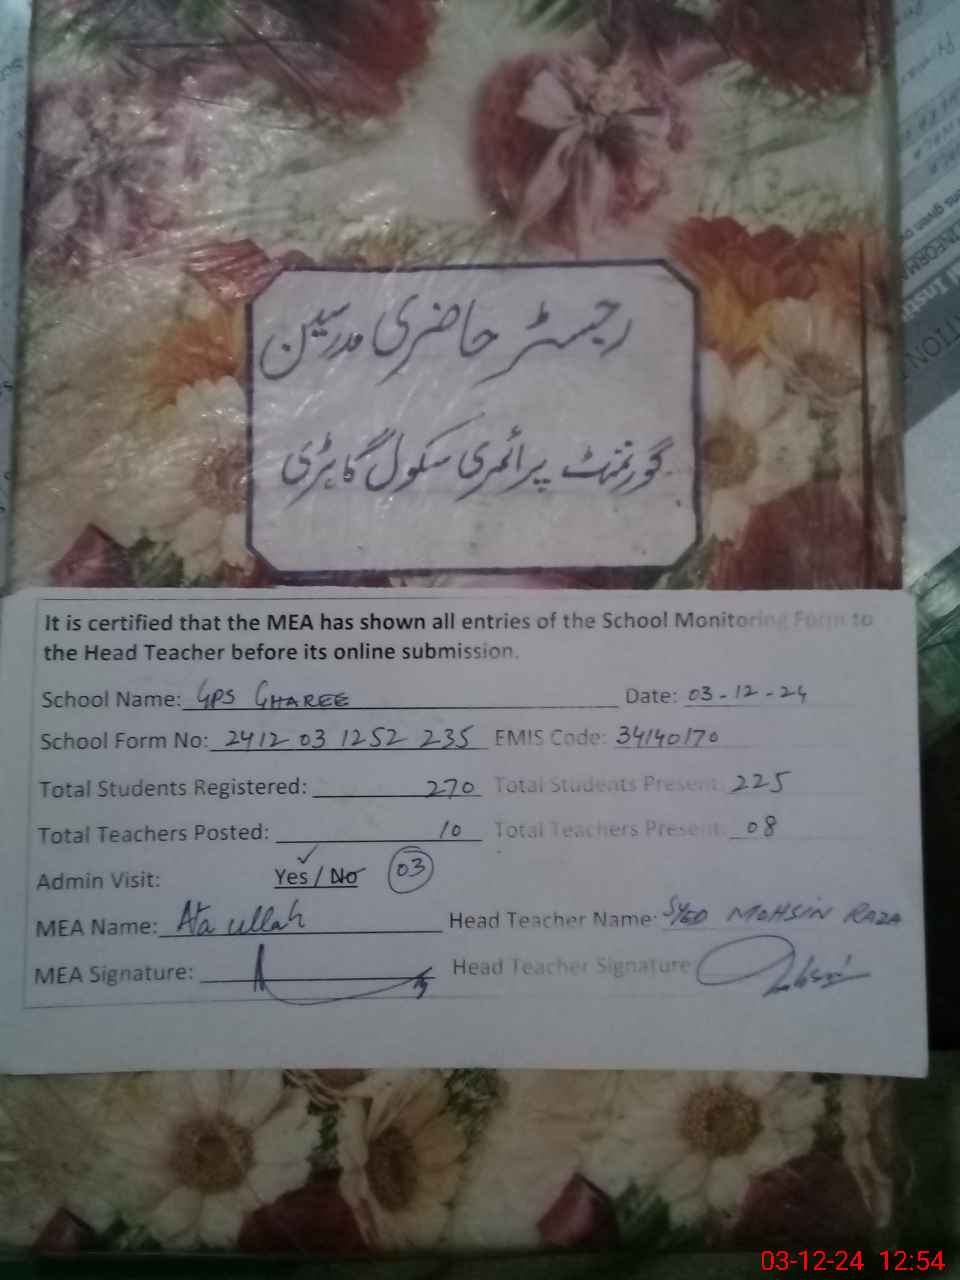 رجسٹر حاضری مدرسین
گورنمنٹ پرائمری سکول گاہڑی
It is certified that the MEA has shown all entries of the School Monitoring Form to
the Head Teacher before its online submission.
School Name: GPS GHAREE Date: 03-12-24
School Form No: 2412 03 1252 235 EMIS Code: 34140170
Total Students Registered: 270 Total Students Present: 225
Total Teachers Posted: 10 Total Teachers Present: 08
Admin Visit: Yes / No 03
MEA Name: Ata ullah Head Teacher Name: SYED MOHSIN RAZA
MEA Signature: Head Teacher Signature
03-12-24 12:54